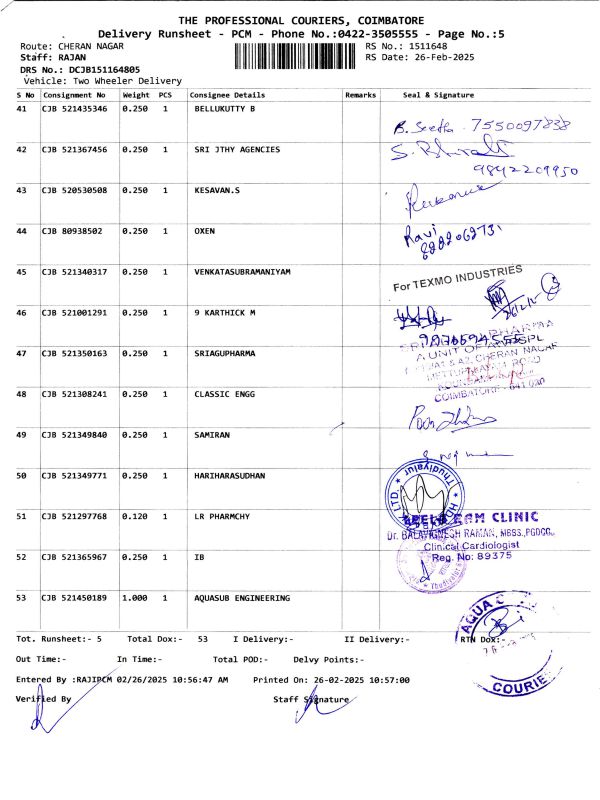 THE PROFESSIONAL COURIERS, COIMBATORE
Delivery Runsheet - PCM - Phone No.:0422-3505555 - Page No.:5
Route: CHERAN NAGAR
RS No.: 1511648
Staff: RAJAN
RS Date: 26-Feb-2025
DRS No.: DCJB151164805
Vehicle: Two Wheeler Delivery
S No Consignment No Weight PCS Consignee Details Remarks Seal & Signature
41 CJB 521435346 0.250 1 BELLUKUTTY B
B. Seetha 7550097838
42 CJB 521367456 0.250 1 SRI JTHY AGENCIES
9842209950
43 CJB 520530508 0.250 1 KESAVAN.S
44 CJB 80938502 0.250 1 OXEN
Ravi
45 CJB 521340317 0.250 1 VENKATASUBRAMANIYAM
For TEXMO INDUSTRIES
46 CJB 521001291 0.250 1 9 KARTHICK M
47 CJB 521350163 0.250 1 SRIAGUPHARMA
PHARMA
A UNIT OF
CHERAN NAGAR
COIMBATORE
48 CJB 521308241 0.250 1 CLASSIC ENGG
49 CJB 521349840 0.250 1 SAMIRAN
50 CJB 521349771 0.250 1 HARIHARASUDHAN
Thudiyalur
LTD.
51 CJB 521297768 0.120 1 LR PHARMCHY
CLINIC
Clinical Cardiologist
Reg. No: 89375
52 CJB 521365967 0.250 1 IB
53 CJB 521450189 1.000 1 AQUASUB ENGINEERING
AQUA
COURIE
Tot. Runsheet:- 5 Total Dox:- 53 I Delivery:- II Delivery:- RTN Dox:-
Out Time:- In Time:- Total POD:- Delvy Points:-
Entered By :RAJIPCM 02/26/2025 10:56:47 AM Printed On: 26-02-2025 10:57:00
Verified By Staff Signature